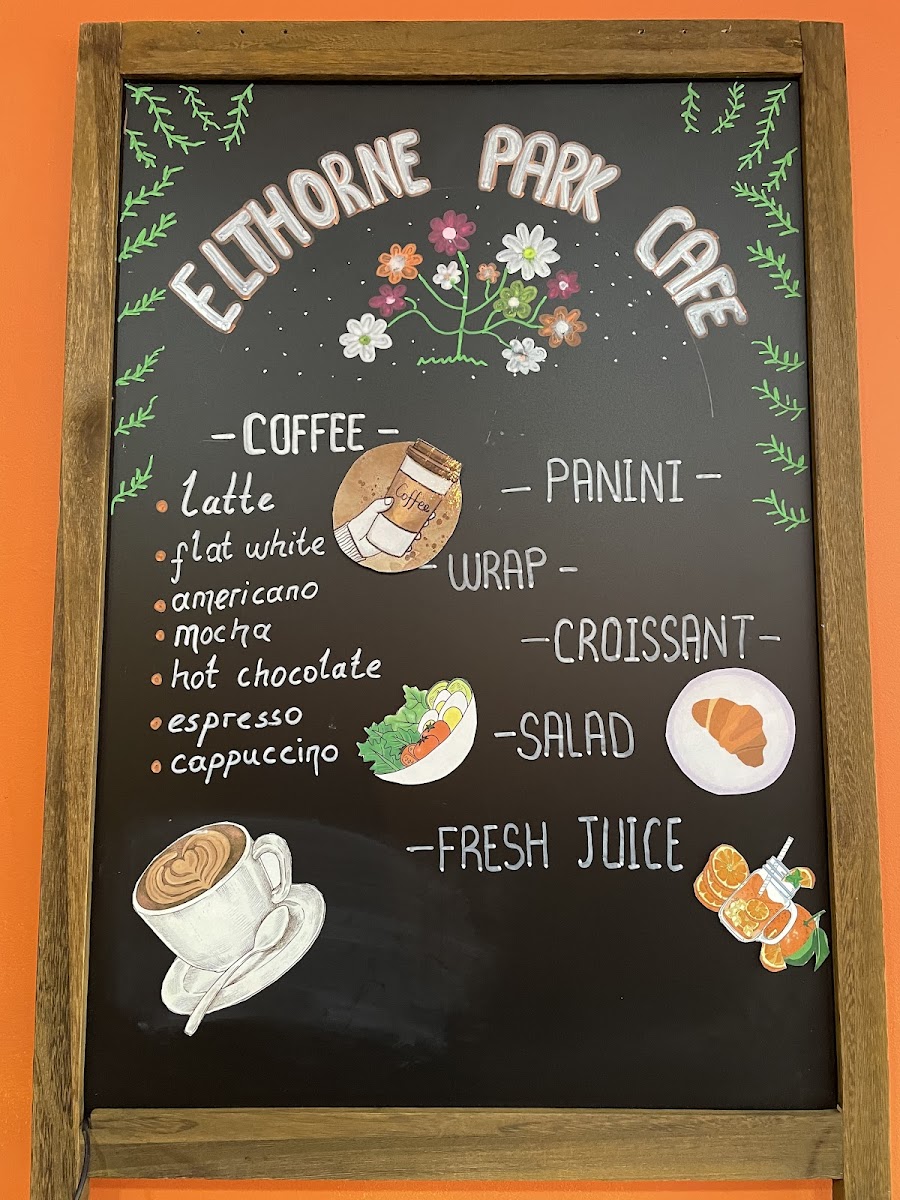 ELTHORNE PARK CAFE
- COFFEE -
latte
flat white
americano
mocha
hot chocolate
espresso
cappuccino
Coffee
- PANINI -
- WRAP -
- CROISSANT -
- SALAD
- FRESH JUICE